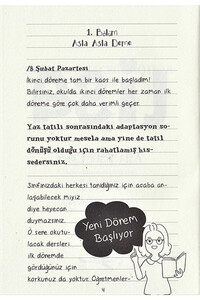 1. Bölüm
Asla Asla Deme
18 Şubat Pazartesi
İkinci döneme tam bir kaos ile başladım!
Bilirsiniz, okulda ikinci dönemler her zaman ilk
döneme göre çok daha verimli geçer.
Yaz tatili sonrasındaki adaptasyon so-
runu yoktur mesela ama yine de tatil
dönüşü olduğu için rahatlamış his-
sedersiniz.
Sınıfınızdaki herkesi tanıdığınız için acaba an-
laşabilecek miyiz
diye heyecan
duymazsınız.
O sene okutu-
lacak dersleri
ilk dönemde
gördüğünüz için
korkunuz da yoktur. Öğretmenler-
Yeni Dönem
Başlıyor